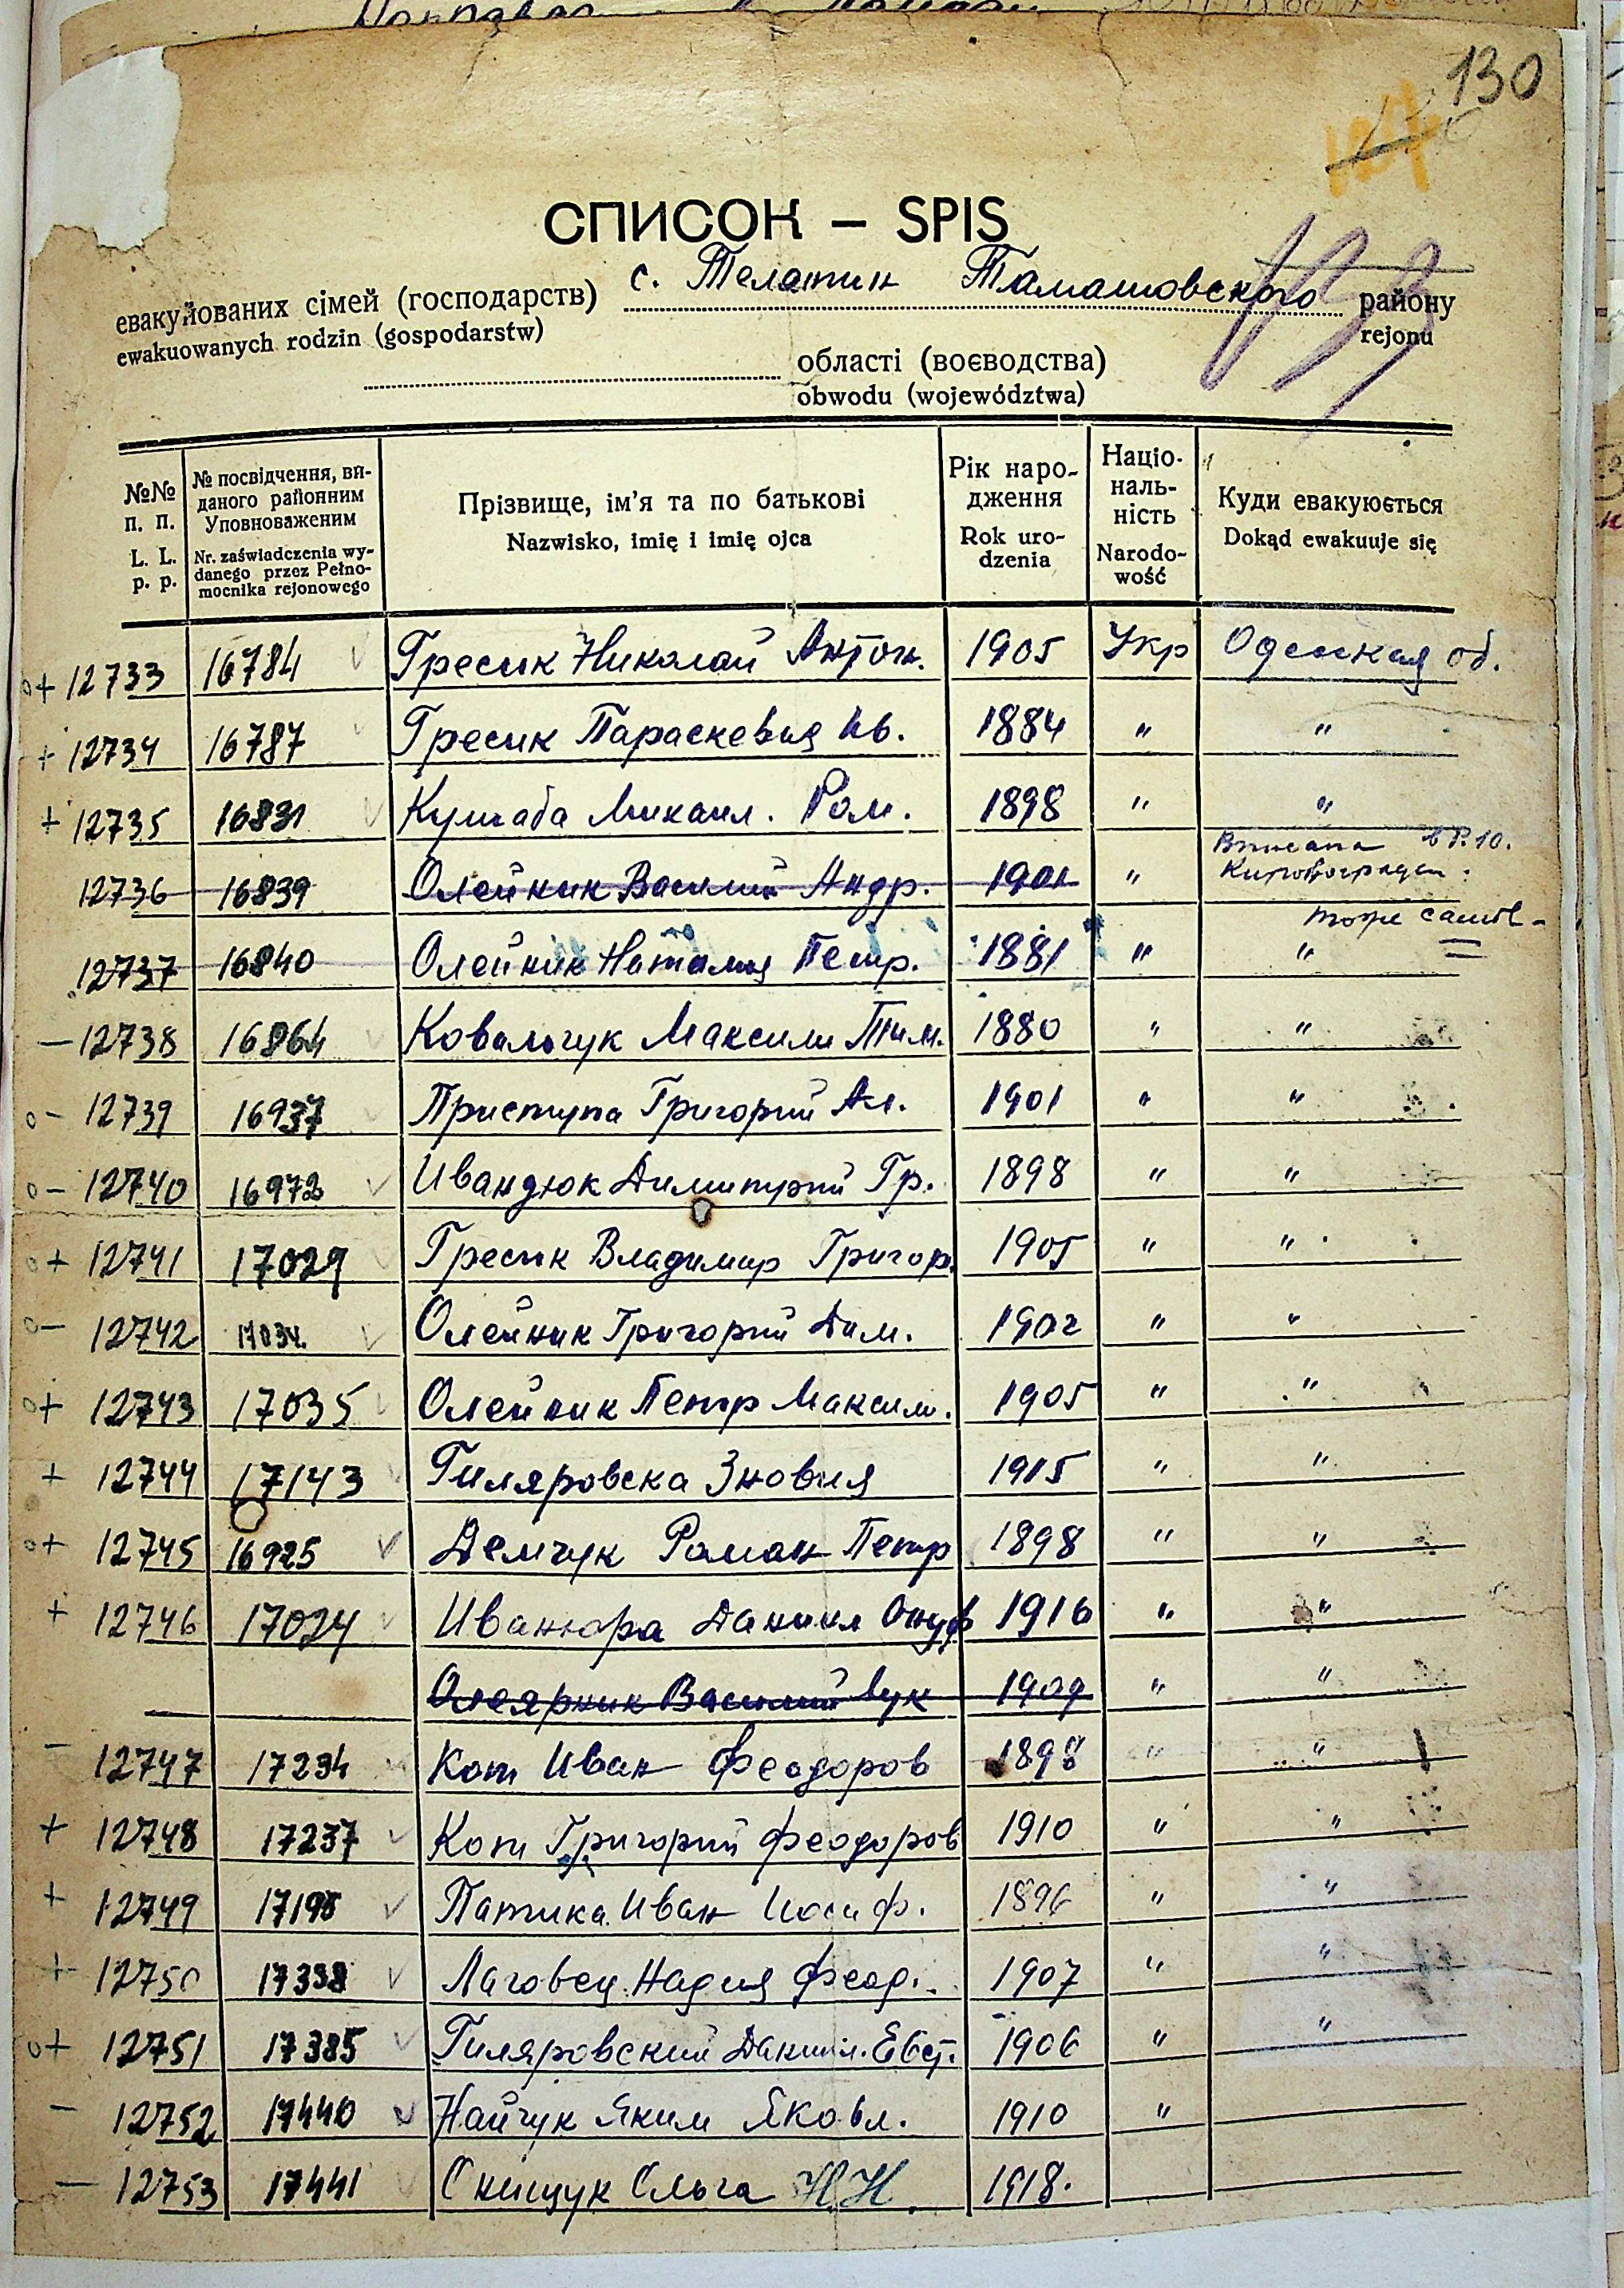 130
СПИСОК – SPIS
евакуйованих сімей (господарств) с. Телятин Тамашовского району
ewakuowanych rodzin (gospodarstw) rejonu
області (воєводства)
obwodu (województwa)
№№ п. п. L. L. p. p. № посвідчення, виданого районним Уповноваженим Nr. zaświadczenia wydanego przez Pełnomocnika rejonowego Прізвище, ім'я та по батькові Nazwisko, imię i imię ojca Рік народження Rok urodzenia Національність Narodowość Куди евакуюється Dokąd ewakuuje się
o+ 12733 16784 Гресик Николай Антон. 1905 Укр Одеская об.
+ 12734 16787 Гресик Параскевия Ив. 1884 " "
+ 12735 16831 Михаил. Ром. 1898 " "
12736 16839 Олейник Василий Андр. 1901 " в Р.10.
тоже
12737 16840 Олейник Наталия Петр. 1881 " "
– 12738 16864 Ковальчук Максим Тим. 1880 " "
o– 12739 16937 Приступа Григорий Ал. 1901 " "
o– 12740 16972 Ивандюк Димитрий Гр. 1898 " "
o+ 12741 17029 Гресик Владимир Григор. 1905 " "
o– 12742 17034 Олейник Григорий Дим. 1902 " "
o+ 12743 17035 Олейник Петр Максим. 1905 " "
+ 12744 17143 Гиляровска Зновия 1915 " "
o+ 12745 16925 Демчук Роман Петр 1898 " "
+ 12746 17024 Иванюра Даниил Онуф 1916 " "
Василий Лук 1909 " "
– 12747 17234 Кот Иван Феодоров 1898 " "
+ 12748 17237 Кот Григорий Феодоров 1910 " "
+ 12749 17198 Патика Иван Иосиф. 1896 " "
+ 12750 17338 Лаговец Надия Феод. 1907 " "
o+ 12751 17385 Гиляровский Даниил. Евст. 1906 " "
– 12752 17440 Найчук Яким Яковл. 1910 "
– 12753 17441 Ольга Н.Н. 1918.